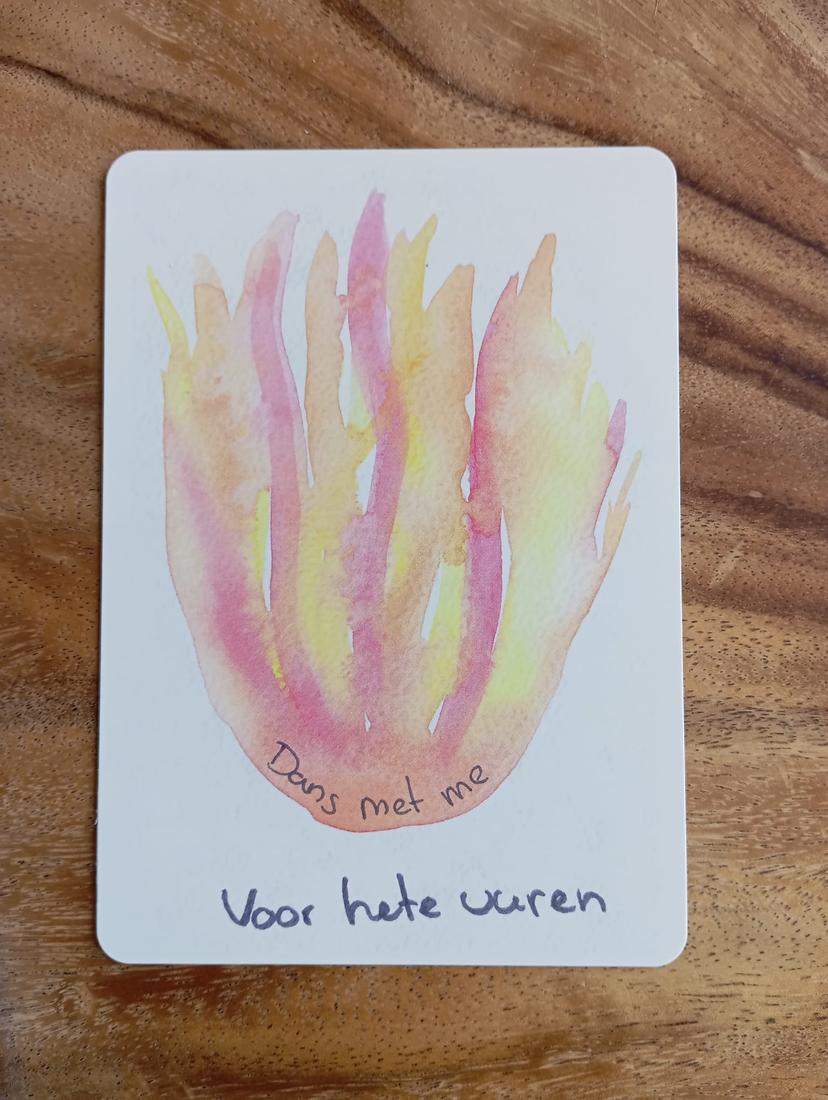 Dans met me
Voor hete vuren